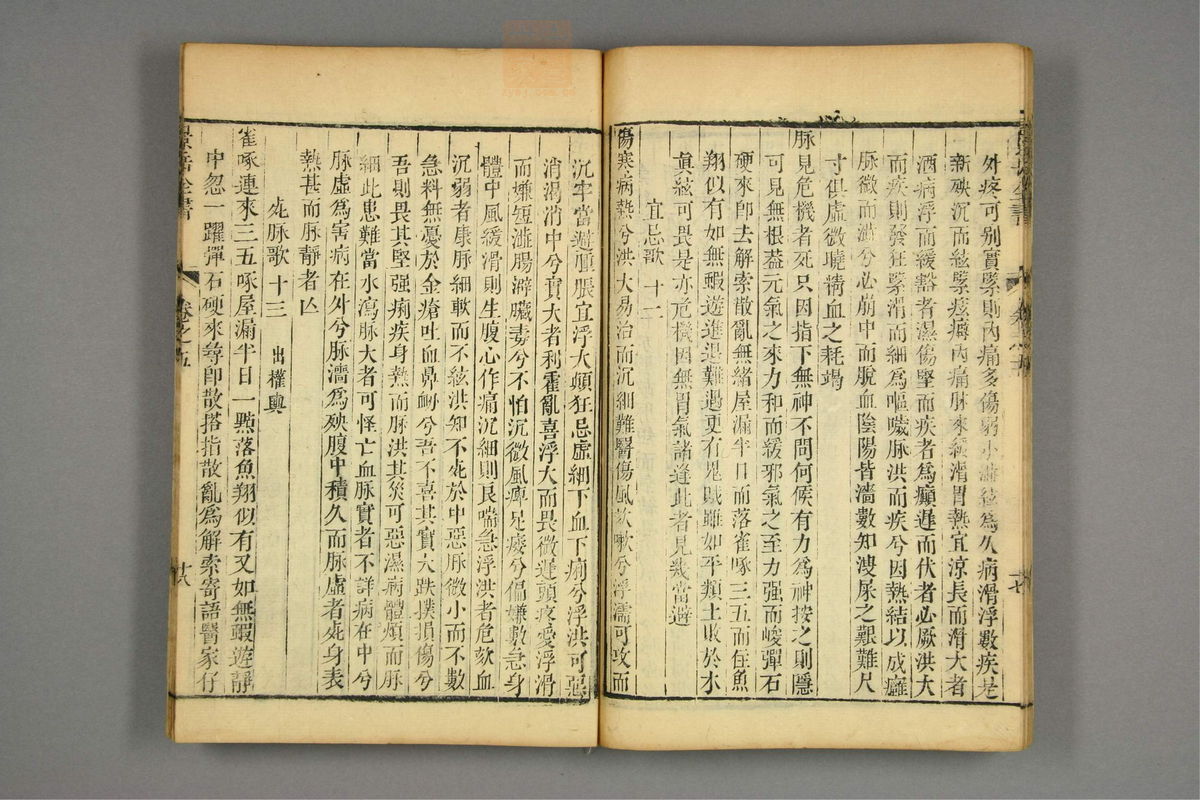 外疼可别實緊則內痛多傷弱小濇絃為久病滑浮數疾是
新殃沉而絃緊痃癖內痛脉來緩滑胃熱宜涼長而滑大者
酒病浮而緩豁者濕傷堅而疾者為癲遲而伏者必厥洪大
而疾則發狂緊滑而細為嘔噦脉洪而疾兮因熱結以成癰
脉微而濇兮必崩中而脫血陰陽皆濇數知溲尿之艱難尺
寸俱虛微曉精血之耗竭
脉見危機者死只因指下無神不問何候有力為神按之則隱
可見無根蓋元氣之來力和而緩邪氣之至力强而峻彈石
硬來即去解索散亂無緒屋漏半日而落雀啄三五而住魚
翔似有如無蝦遊進退難遇更有鬼賊雖如平類土敗於水
真絃可畏是亦危機因無胃氣諸逢此者見幾當避
宜忌歌 十二
傷寒病熱兮洪大易治而沉細難醫傷風欬嗽兮浮濡可攻而
沉牢當避腫脹宜浮大顛狂忌虛細下血下痢兮浮洪可惡
消渴消中兮實大者利霍亂喜浮大而畏微遲頭疼愛浮滑
而嫌短濇腸澼臟毒兮不怕沉微風痺足痿兮偏嫌數急身
體中風緩滑則生腹心作痛沉細則良喘急浮洪者危欬血
沉弱者康脉細軟而不絃洪知不死於中惡脉微小而不數
急料無憂於金瘡吐血鼻衄兮吾不喜其實大跌撲損傷兮
吾則畏其堅强痢疾身熱而脉洪其災可惡濕病體煩而脉
細此患難當水瀉脉大者可怪亡血脉實者不詳病在中兮
脉虛為害病在外兮脉濇為殃腹中積久而脉虛者死身表
熱甚而脉靜者亡
死脉歌 十三 出權輿
雀啄連來三五啄屋漏半日一點落魚翔似有又如無蝦遊靜
中忽一躍彈石硬來尋即散搭指散亂為解索寄語醫家仔
景岳全書
卷之五
十七
景岳全書
卷之五
十八